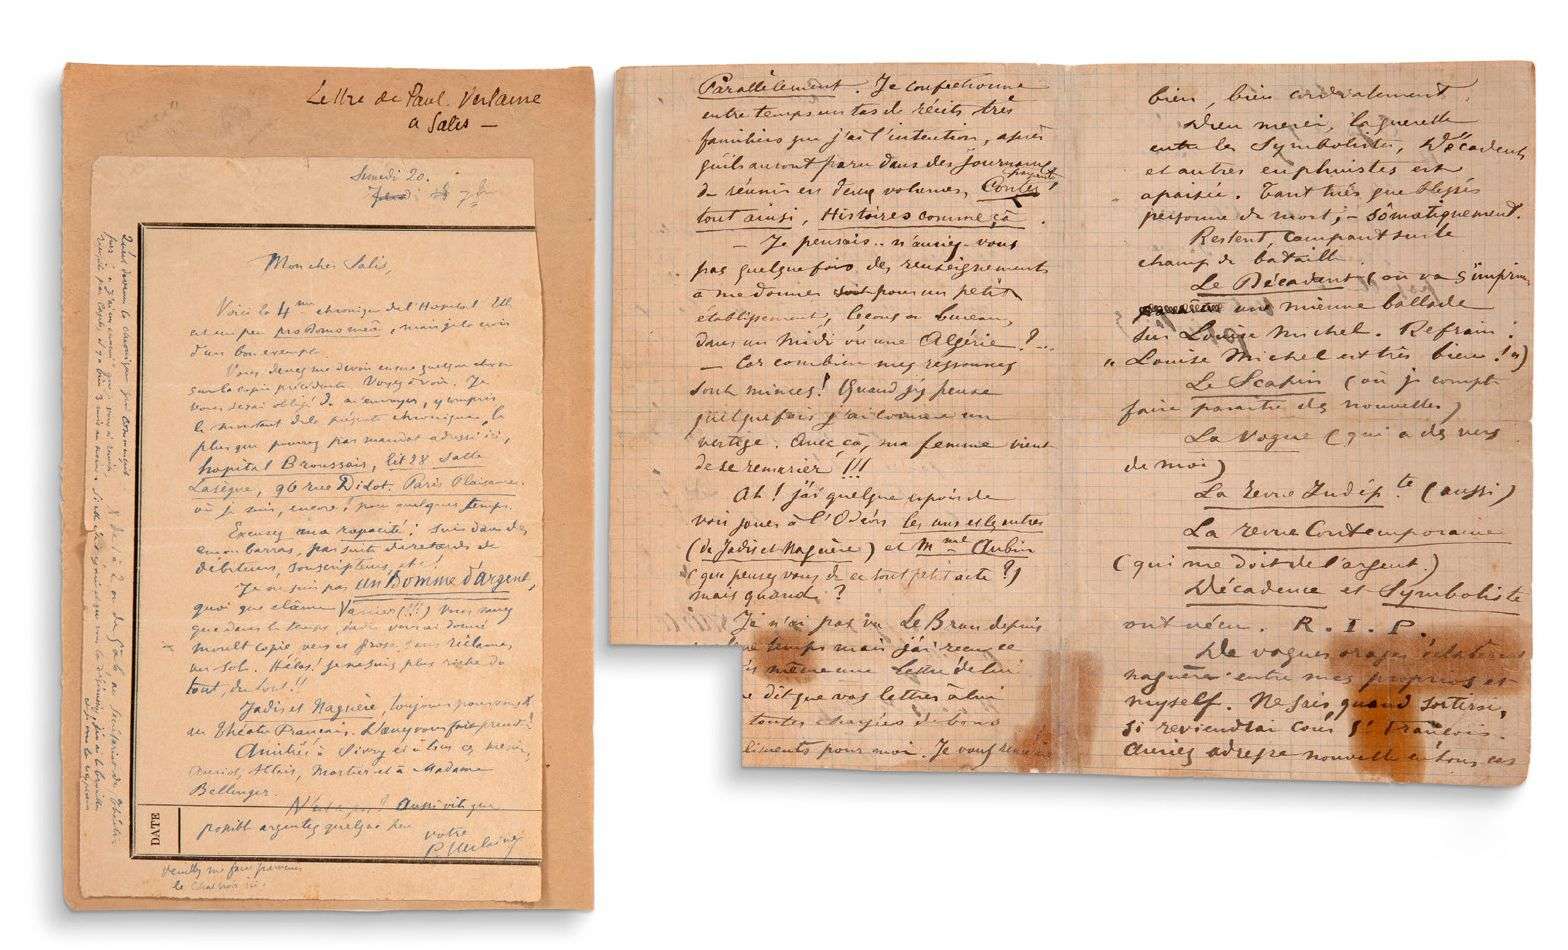 Lettre de Paul Verlaine
a Salis —
Samedi 20.
Jeudi 7bre
Mon cher Salis,
Voici la 4me chronique de l'Hospital. Elle
est un peu pro domo mea, mais
d'un bon exemple.
Vous devez me devoir encore quelque chose
sur la copie précédente. Voyez à voir. Je
vous serai obligé de m'envoyer, y compris
le montant de la présente chronique, le
plus que pourrez par mandat adressé ici,
hopital Broussais, lit 28 salle
Lasègue, 96 rue Didot. Paris Plaisance.
où je suis, encore, pour quelques temps.
Excusez ma rapacité : suis dans des
embarras, par suite de retards de
débiteurs, souscripteurs, etc !
Je ne suis pas un Homme d'argent,
quoi que clame Vanier (!!!) vous savez
que dans le temps, vous ai donné
moult copie vers et prose, sans réclamer
un sol. Hélas ! je ne suis plus riche du
tout, du tout !!
Jadis et Naguère, toujours pour
au Théâtre Français. L'ouvrage vous fait prend ?
Amitiés à Sivry et à tous ces messieurs,
Auriol, Allais, Martier et à Madame
Bellenger.
Aussi vite que
possible argentez quelque peu
votre
P. Verlaine
DATE
Veuillez me faire parvenir
le Chat noir
Parallèlement. Je confectionne
entre temps un tas de récits très
familiers que j'ai l'intention, après
qu'ils auront paru dans des journaux
payants
de réunir en deux volumes, Contes
tout ainsi, Histoires comme çà.
— Je pensais.. n'auriez-vous
pas quelquefois des renseignements
à me donner pour un petit
établissement, leçons ou bureau,
dans un Midi ou une Algérie ?...
— Car combien mes ressources
sont minces ! Quand j'y pense
quelquefois j'ai comme un
vertige. Avec çà, ma femme vient
de se remarier !!!
Ah ! j'ai quelque espoir de
voir jouer à l'Odéon les uns et les autres
(de Jadis et Naguère) et Mme Aubin
(que pensez-vous de ce tout petit acte ?)
mais quand ?
Je n'ai pas vu Le Brun depuis
temps mais j'ai reçu ce
même une lettre de lui
dit que vos lettres à lui
toutes chargées de bons
pour moi. Je vous
bien, bien cordialement.
Dieu merci, la querelle
entre les Symbolistes, Décadents
et autres euphuistes est
apaisée. Tant tués que blessés
personne de mort, — sômatiquement.
Restent, campant sur le
champ de bataille
Le Décadent (où va s'imprimer
une mienne ballade
sur Louise Michel. Refrain :
« Louise Michel est très bien ! »)
Le Scapin (où je compte
faire paraître des nouvelles)
La Vogue (qui a des vers
de moi)
La revue Indépte (aussi)
La revue Contemporaine
(qui me doit de l'argent.)
Décadence et Symboliste
ont vécu. R. I. P.
De vagues orages éclatèrent
naguère entre mes proprios et
myself. Ne sais quand sortirai,
si reviendrai cour St François.
Aurez adresse nouvelle en tous cas